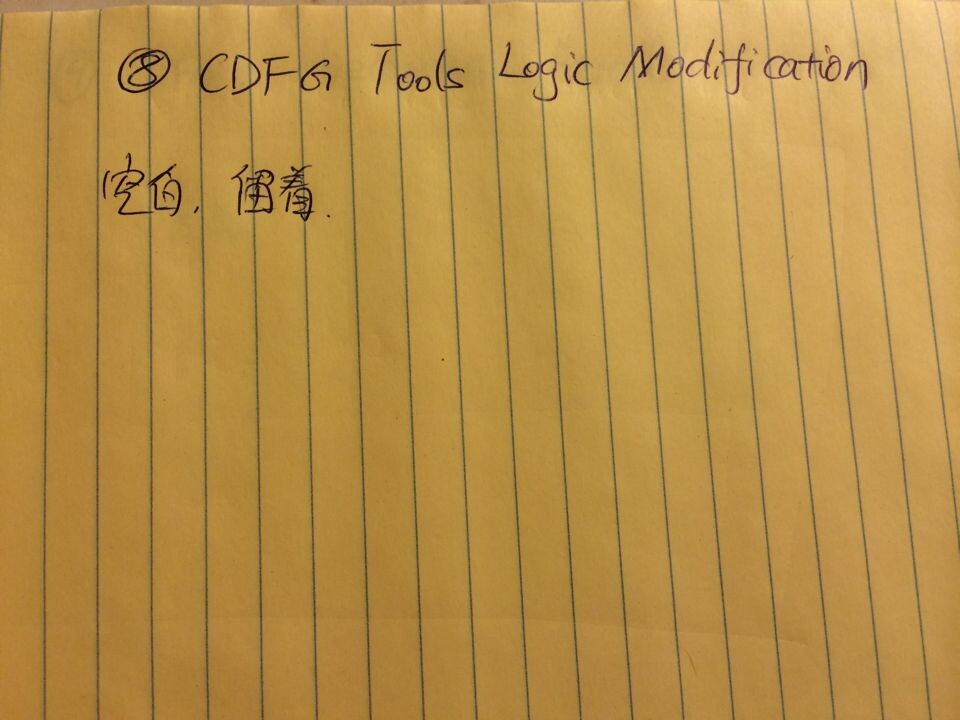 ⑧ CDFG Tools Logic Modification
空白. 留着.